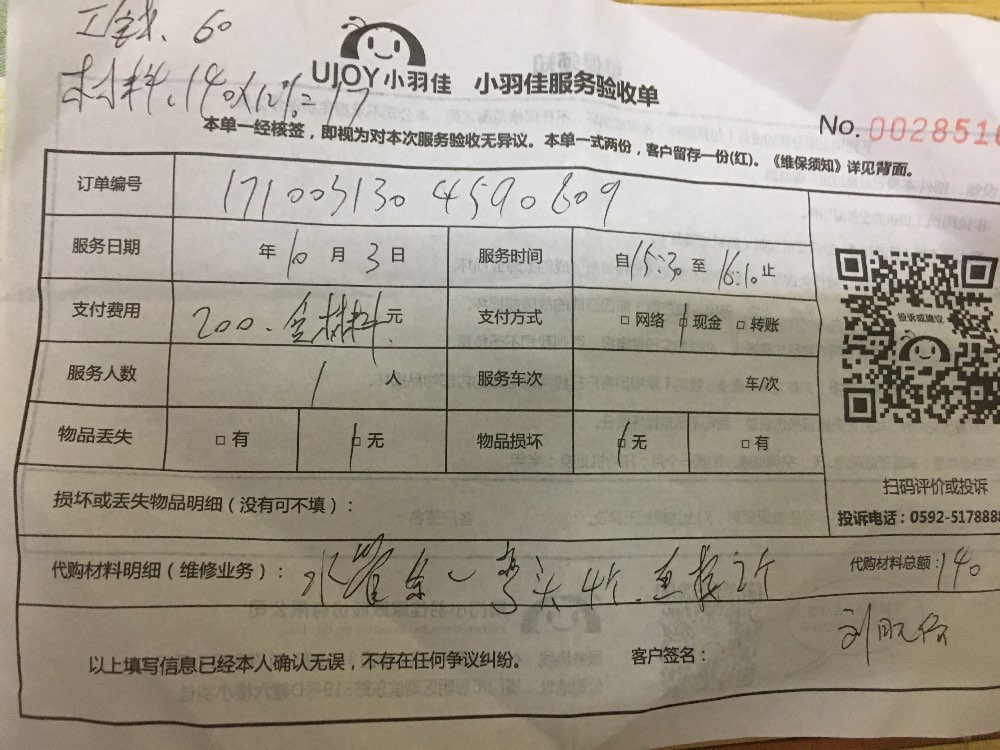 工钱、60
材料、140×12%=17
UJOY 小羽佳 小羽佳服务验收单
No. 0028516
本单一经核签，即视为对本次服务验收无异议。本单一式两份，客户留存一份(红)。《维保须知》详见背面。
订单编号 1710031304590609
服务日期 年10月3日 服务时间 自15:30至16:10止
支付费用 200.含材料元 支付方式 □ 网络 □ 现金 □ 转账
投诉或建议
服务人数 1 人 服务车次 车/次
物品丢失 □ 有 □ 无 物品损坏 □ 无 □ 有
扫码评价或投诉
损坏或丢失物品明细（没有可不填）：
投诉电话：0592-5178888
代购材料明细（维修业务）： 水管 一 弯头4个. 直接2个 代购材料总额：140
以上填写信息已经本人确认无误，不存在任何争议纠纷。 客户签名： 刘